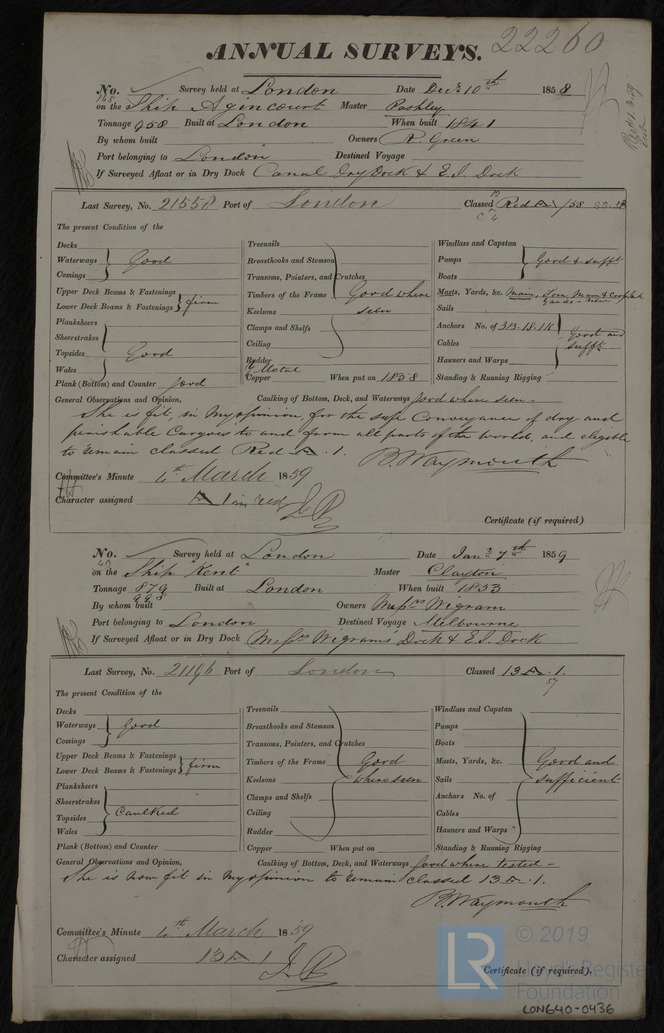 22260
ANNUAL SURVEYS.
No. 165 Survey held at London Date Decr 10th 1858
on the Ship Agincourt Master Pashley
Tonnage 958 Built at London When built 1841
By whom built Owners R. Green
Port belonging to London Destined Voyage
If Surveyed Afloat or in Dry Dock Canal Dry Dock & E.I. Dock
Last Survey, No. 21558 Port of London Classed Red A /58
The present Condition of the
Decks
Waterways Good
Comings
Upper Deck Beams & Fastenings
Lower Deck Beams & Fastenings firm
Planksheers
Sheerstrakes
Topsides Good
Wales
Plank (Bottom) and Counter Good
Treenails
Breasthooks and Stemson
Transoms, Pointers, and Crutches
Timbers of the Frame Good where
Keelsons seen
Clamps and Shelfs
Ceiling
Rudder
Y. Metal
Copper When put on 1858
Windlass and Capstan
Pumps Good & sufft
Boats
Masts, Yards, &c. Main, Fore, Main &
Yards - New
Sails
Anchors No. of 3B. 1S. 1K
Cables Good and
sufft
Hawsers and Warps
Standing & Running Rigging
General Observations and Opinion, Caulking of Bottom, Deck, and Waterways Good where seen -
She is fit, in my opinion, for the safe Conveyance of dry and
perishable Cargoes to and from all parts of the world, and eligible
to remain classed Red A. 1.
B. Waymouth
Committee's Minute 4th March 1859
Character assigned A 1 in red
Certificate (if required)
No. 47 Survey held at London Date Jany 7th 1859
on the Ship "Kent" Master Clayton
Tonnage 879 Built at London When built 1853
998
By whom built Owners Messrs Wigram
Port belonging to London Destined Voyage Melbourne
If Surveyed Afloat or in Dry Dock Messrs Wigrams' Dock & E.I. Dock
Last Survey, No. 21196 Port of London Classed 13 A. 1.
57
The present Condition of the
Decks
Waterways Good
Comings
Upper Deck Beams & Fastenings
Lower Deck Beams & Fastenings firm
Planksheers
Sheerstrakes
Topsides Caulked
Wales
Plank (Bottom) and Counter
Treenails
Breasthooks and Stemson
Transoms, Pointers, and Crutches
Timbers of the Frame Good
Keelsons where seen
Clamps and Shelfs
Ceiling
Rudder
Copper When put on
Windlass and Capstan
Pumps
Boats
Masts, Yards, &c. Good and
Sails sufficient
Anchors No. of
Cables
Hawsers and Warps
Standing & Running Rigging
General Observations and Opinion, Caulking of Bottom, Deck, and Waterways Good where tested -
She is now fit in my opinion to remain classed 13 A. 1.
B. Waymouth
Committee's Minute 4th March 1859
Character assigned 13 A 1
Certificate (if required).
© 2019
LR Lloyd's Register
Foundation
LON640-0436